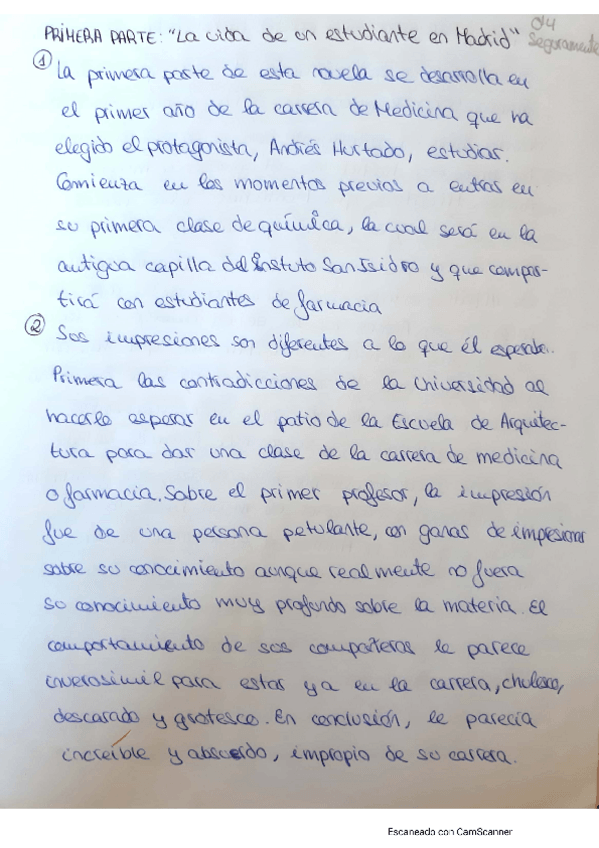 PRIMERA PARTE: "La vida de un estudiante en Madrid"
Seguramente
① La primera parte de esta novela se desarrolla en
el primer año de la carrera de Medicina que ha
elegido el protagonista, Andrés Hurtado, estudiar.
Comienza en los momentos previos a entrar en
su primera clase de química, la cual será en la
antigua capilla del Instituto San Isidro y que compar-
tirá con estudiantes de farmacia
② Sus impresiones son diferentes a lo que él esperaba.
Primera las contradicciones de la Universidad al
hacerle esperar en el patio de la Escuela de Arquitec-
tura para dar una clase de la carrera de medicina
o farmacia. Sobre el primer profesor, la impresión
fue de una persona petulante, con ganas de impresionar
sobre su conocimiento aunque realmente no fuera
su conocimiento muy profundo sobre la materia. El
comportamiento de sus compañeros le parece
inverosimil para estar ya en la carrera, chulesco,
descarado y grotesco. En conclusión, le parecía
increíble y absurdo, impropio de su carrera.
Escaneado con CamScanner